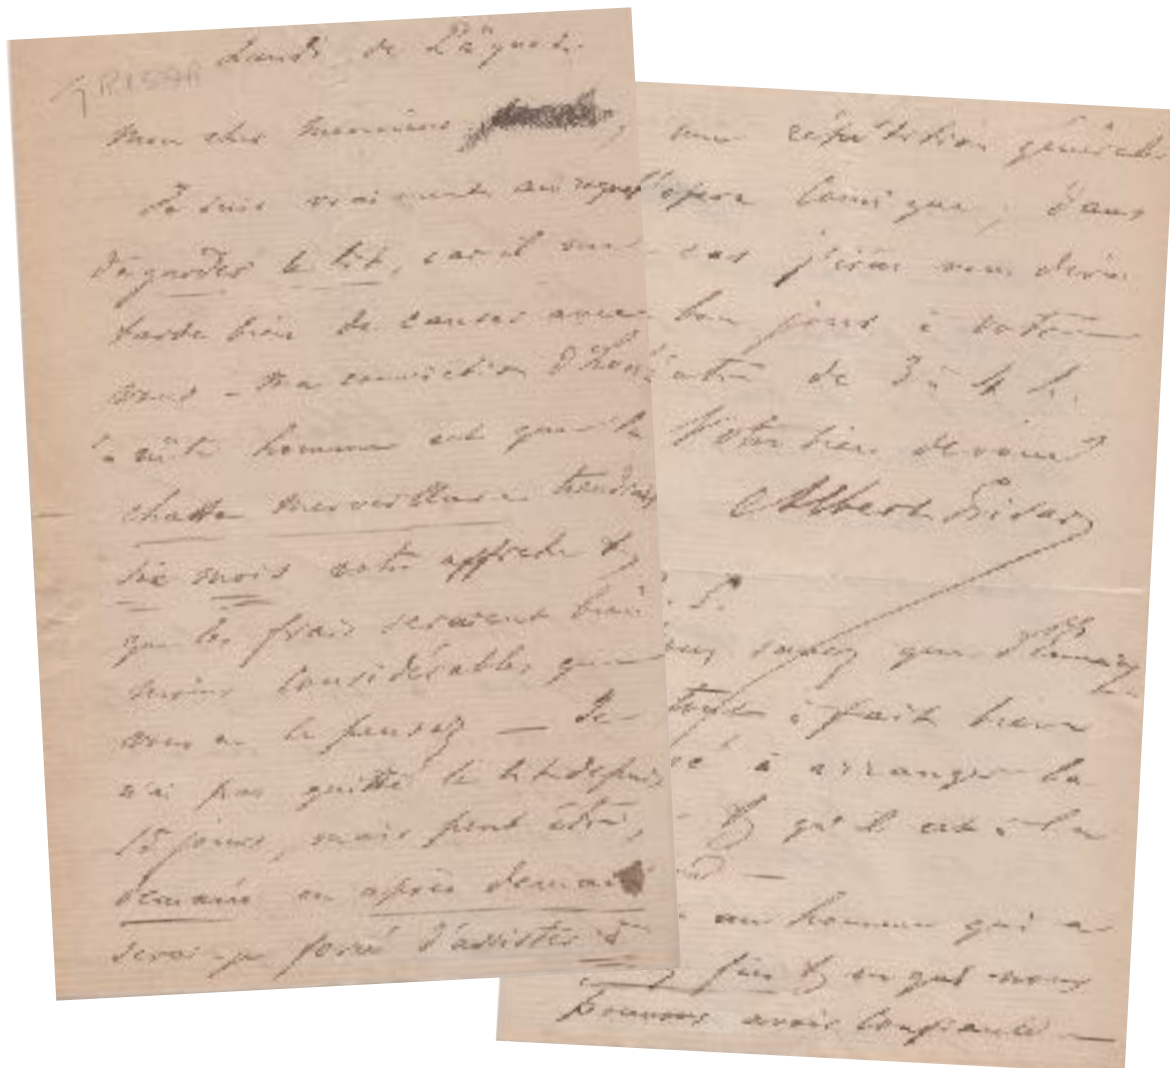 Lundi de Pâques.
Mon cher Monsieur
Je suis vraiment
de garder le lit, car il me
tarde bien de causer avec
vous - Ma conviction d'hon
nête homme est que la
chatte merveilleuse tiendrait
six mois votre affiche &
que les frais seraient bien
moins considérables que
vous ne le pensez — Je
n'ai pas quitté le lit depuis
15 jours, mais peut être,
demain ou après demain
serai-je forcé d'assister à
une répétition générale
l'opéra Comique; dans
cas j'irai vous dire
bonjour à votre
de 3 à 4 h.
Votre bien dévoué
Albert Grisar
P. S.
Vous savez que
tout à fait
à arranger la
& qu'il est à la
un homme qui a
& en qui nous
pouvons avoir confiance —